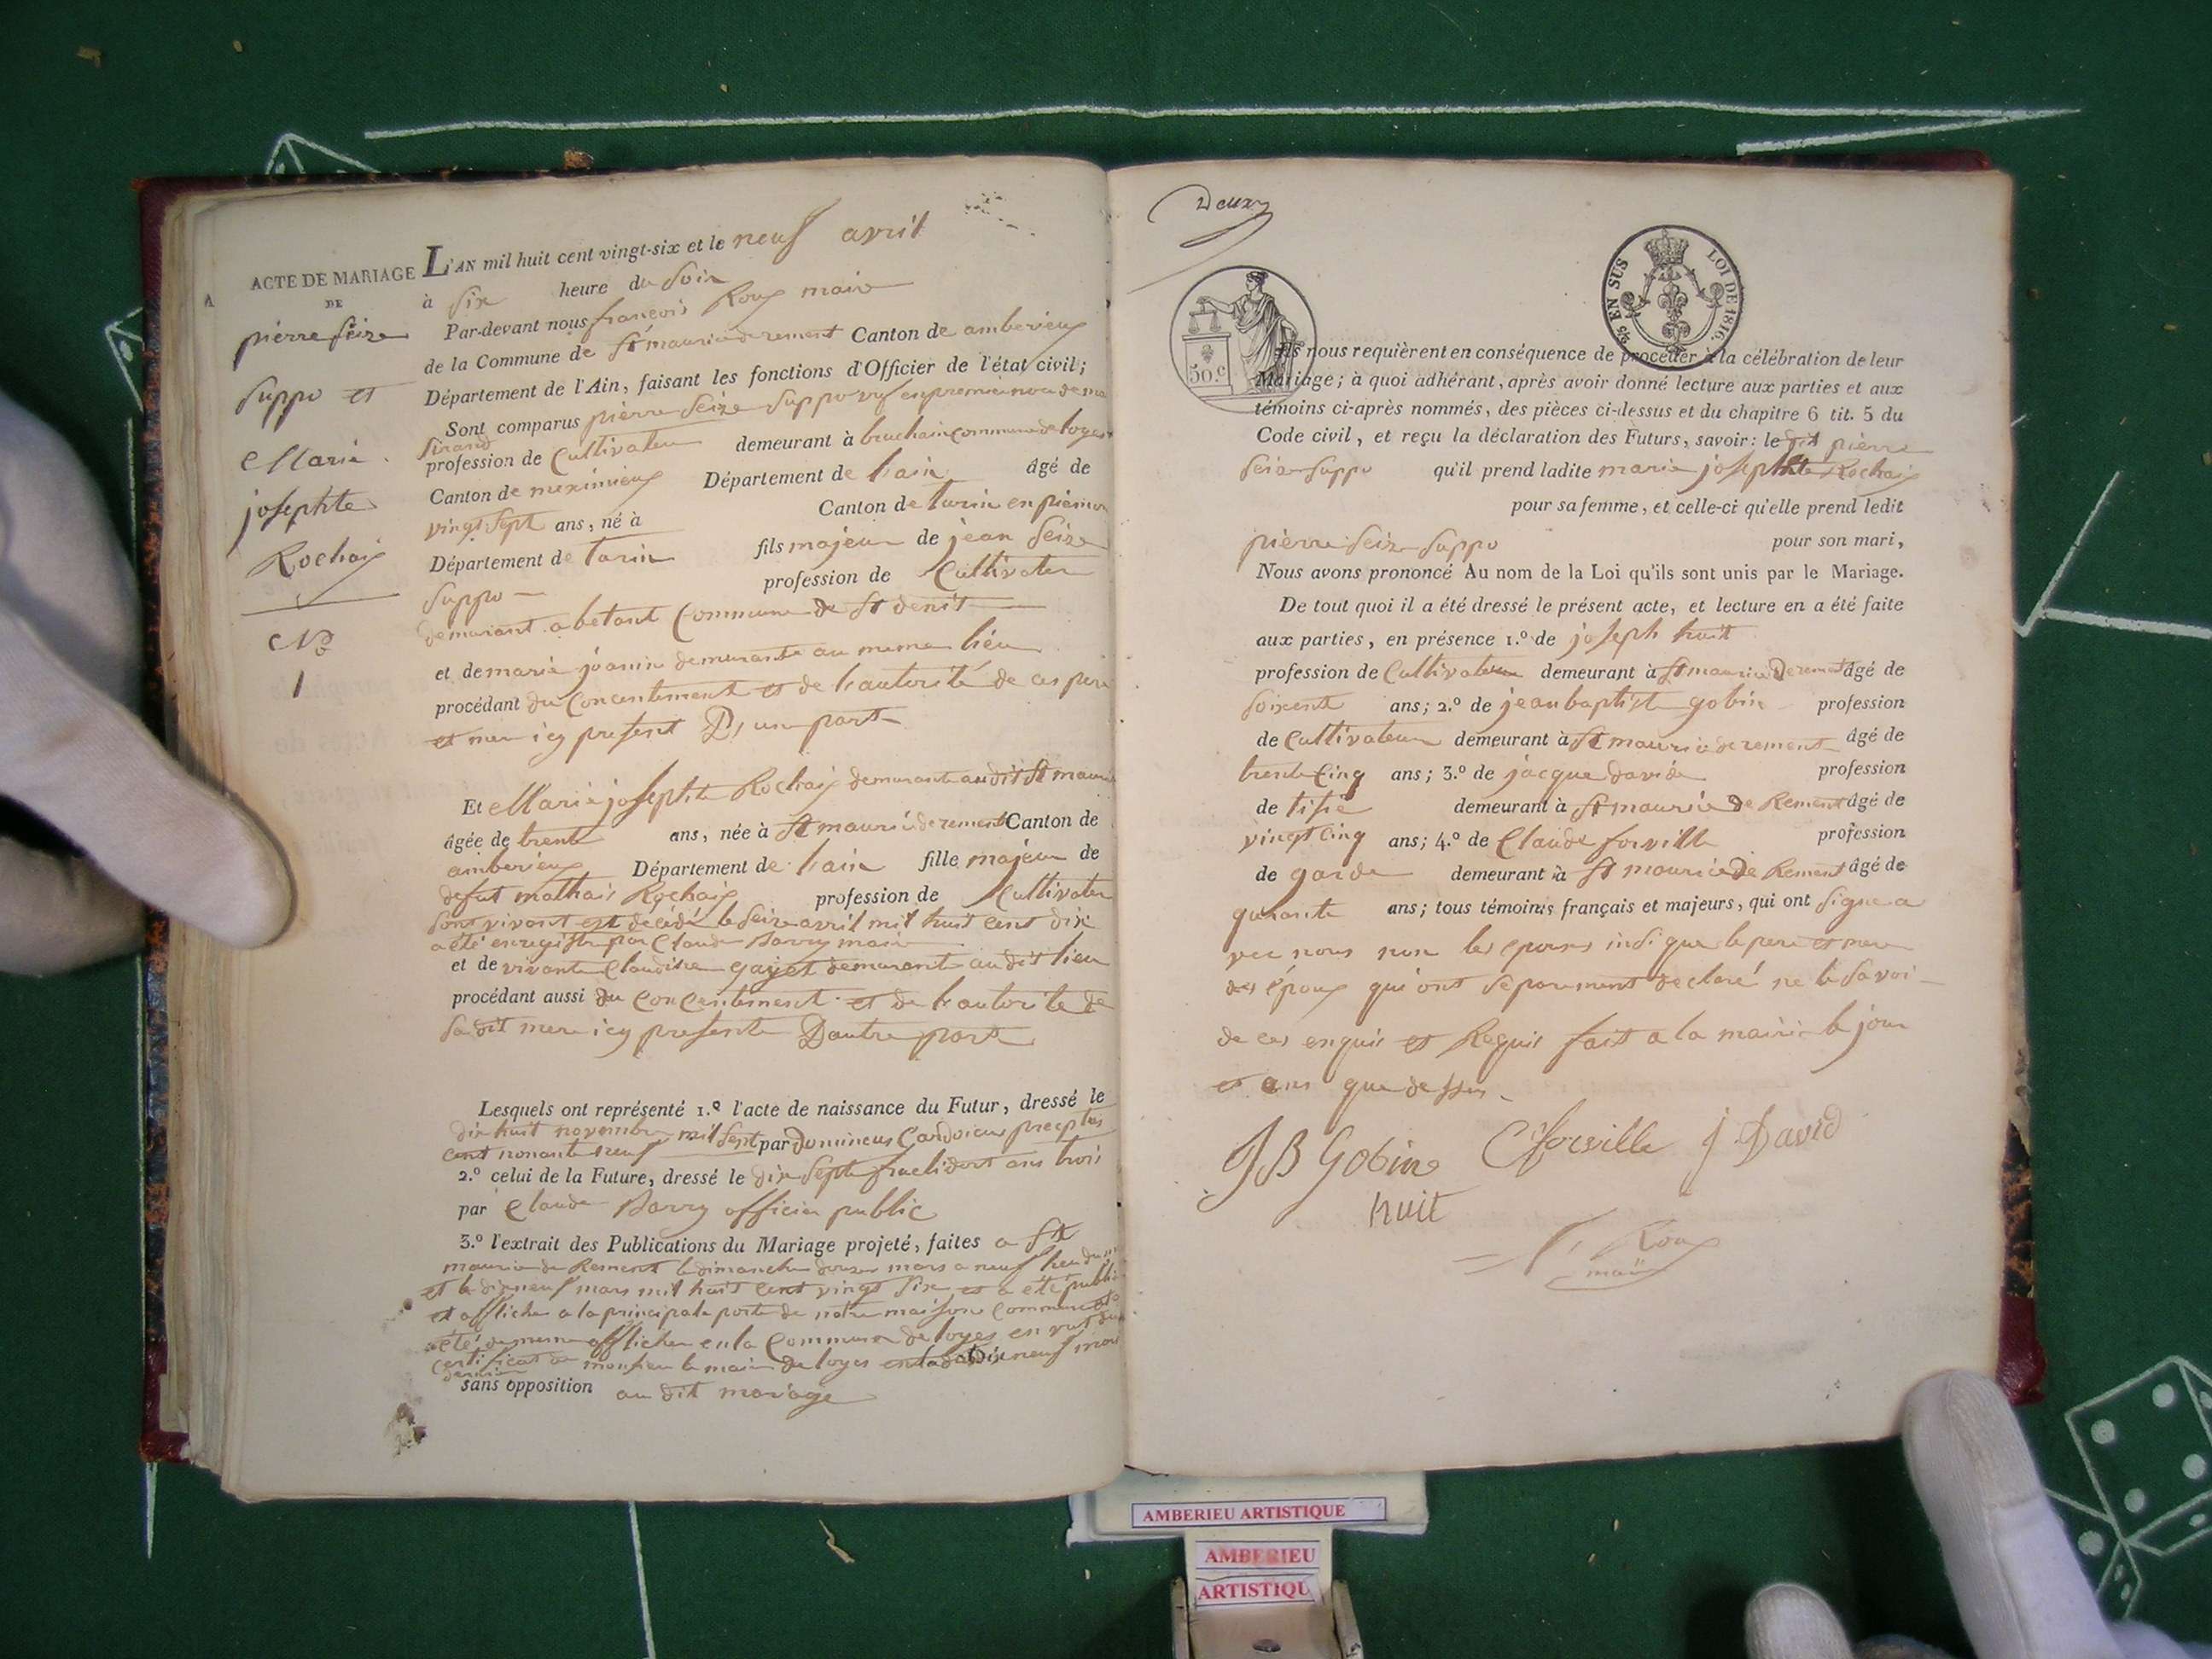 ACTE DE MARIAGE
DE
pierre Seize
Suppo et
Marie
josephte
Rochaix
No
1
L'AN mil huit cent vingt-six et le neuf avril
à six heure du soir
Par-devant nous françois Roux maire
de la Commune de St maurice de rement Canton de amberieux
Département de l'Ain, faisant les fonctions d'Officier de l'état civil;
Sont comparus pierre Seize Suppo vuf en premier noce de
profession de Cultivateur demeurant à commune de loyes
Canton de meximieux Département de lain âgé de
vingt sept ans, né à Canton de turin en piemon
Département de turin fils majeur de jean Seize
Suppo profession de Cultivater
demurant a betant Commune de St denit
et de marie joanin demurante au meme lieu
procédant du Concentement et de lautorité de ces pere
et mere icy present D'une part
Et Marie josephte Rochaix demurante au dit St mauri
âgée de trente ans, née à St maurice de rement Canton de
amberieux Département de lain fille majeur de
defut mathais Rochaix profession de Cultivater
son vivant est décédé le seize avril mil huit cent dix
a été enregistre par Claude Barry maire
et de vivante Claudine gayet demurante au dit lieu
procédant aussi du concentement et de lautorité de
sa dit mere icy presente D'autre part
Lesquels ont représenté 1.º l'acte de naissance du Futur, dressé le
dix huit novembre mil sept par
cent nonante neuf
2.º celui de la Future, dressé le dix sept fructidort ans trois
par Claude Barry officier public
3.º l'extrait des Publications du Mariage projeté, faites a St
maurice de Rement le dimanche douze mars a neuf heu du
et le dixneuf mars mil huit cent vingt six et a été publi
et afficher a la principale porte de notre maison commune
été de meme afficher en la Commune de loyes en vut du
certificat de monsieur le maire de loyes dix neuf
dernier
sans opposition au dit mariage
Deux
50.c
EN SUS LOI DE 1816.
Ils nous requièrent en conséquence de procéder à la célébration de leur
Mariage; à quoi adhérant, après avoir donné lecture aux parties et aux
témoins ci-après nommés, des pièces ci-dessus et du chapitre 6 tit. 5 du
Code civil, et reçu la déclaration des Futurs, savoir: le dit pierre
Seize Suppo qu'il prend ladite marie josephte Rochaix
pour sa femme, et celle-ci qu'elle prend ledit
pierre Seize Suppo pour son mari,
Nous avons prononcé Au nom de la Loi qu'ils sont unis par le Mariage.
De tout quoi il a été dressé le présent acte, et lecture en a été faite
aux parties, en présence 1.º de joseph huit
profession de Cultivateur demeurant à St maurice De rement âgé de
soixent ans; 2.º de jean baptiste gobin profession
de Cultivateur demeurant à St maurice de rement âgé de
trente Cinq ans; 3.º de jacque david profession
de tisie demeurant à St maurice de Rement âgé de
vingt Cinq ans; 4.º de Claude forville profession
de garde demeurant à St maurice De Rement âgé de
quarante ans; tous témoins français et majeurs, qui ont signe a
vec nous non les epoux insi que le pere et mere
des époux qui ont séparement declaré ne le savoi
de ces enquis et Requis fait a la mairie le jour
et ans que dessus
JB Gobin C forville J. David
huit
Roux
maire
AMBERIEU ARTISTIQUE
AMBERIEU
ARTISTIQU